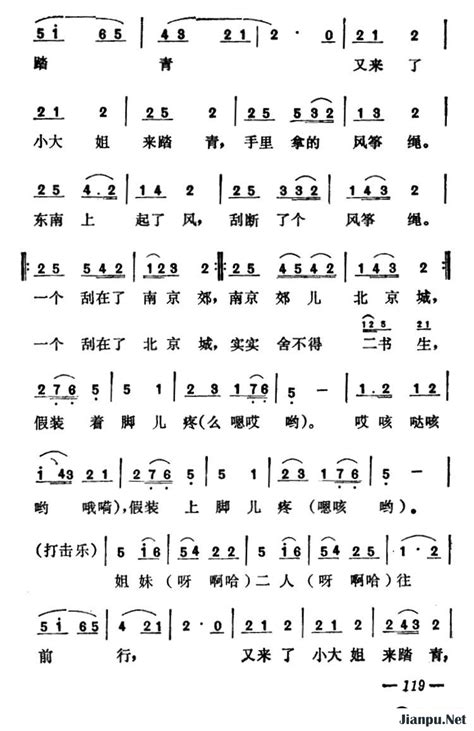 5 i 6 5 | 4 3 2 1 | 2 · 0 | 2 1 2
踏 青 又 来 了
2 1 2 | 2 5 2 | 2 5 5 3 2 | 1 3 2
小大 姐 来踏 青，手里 拿的 风筝 绳。
2 5 4 . 2 | 1 4 2 | 2 5 3 3 2 | 1 4 3 2
东南 上 起了 风，刮断 了个 风筝 绳。
2 5 5 4 2 | 1 2 3 2 | 2 5 4 5 4 2 | 1 4 3 2
一个 刮在了 南京 郊，南京 郊 儿 北京 城，
一个 刮在了 北京 城，实实 舍不得 二书 生，
1 2 5 2 1
2 7 6 5 | 5 1 | 2 2 3 1 7 6 | 5 - | 1 . 2 1 2
假装 着 脚 儿 疼(么 嗯哎 哟)。 哎咳 哒咳
i 4 3 2 1 | 2 7 6 5 | 5 1 | 2 3 1 7 6 | 5 -
哟 哦嗬)，假装 上 脚 儿 疼 (嗯咳 哟)。
(打击乐) | 5 i 6 | 5 4 2 2 | 5 i 6 | 5 4 2 2 | 1 · 2
姐 妹 (呀 啊哈) 二 人 (呀 啊哈) 往
5 i 6 5 | 4 2 1 | 2 · 0 | 2 1 2 | 2 1 2 | 2 4 3 2
前 行， 又来 了 小大 姐 来踏 青，
— 119 —
Jianpu.Net